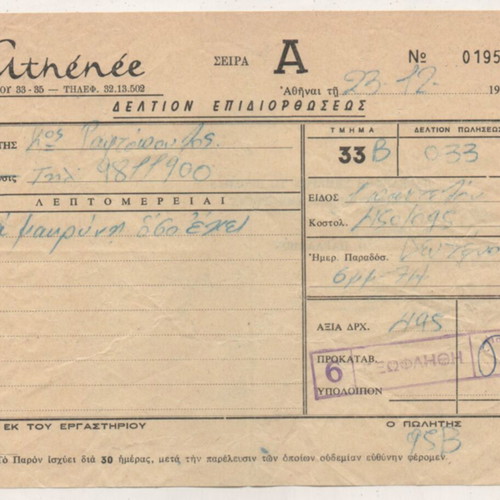 Athénée
ΟΥ 33-35 — ΤΗΛΕΦ. 32.13.502
ΣΕΙΡΑ Α
№ 0195
Ἀθῆναι τῇ 23-12- 19
ΔΕΛΤΙΟΝ ΕΠΙΔΙΟΡΘΩΣΕΩΣ
ΤΗΣ Κος
Τηλ 9811900
ΛΕΠΤΟΜΕΡΕΙΑΙ
μακρύνη ὅσο ἔχει
ΤΜΗΜΑ
ΔΕΛΤΙΟΝ ΠΩΛΗΣΕΩΣ
33 Β 033
ΕΙΔΟΣ
Κοστολ.
Ἡμερ. Παραδόσ.
ΑΞΙΑ ΔΡΧ. 495
ΠΡΟΚΑΤΑΒ.
6 ΕΞΩΦΛΗΘΗ
ΥΠΟΛΟΙΠΟΝ
ΕΚ ΤΟΥ ΕΡΓΑΣΤΗΡΙΟΥ
Ο ΠΩΛΗΤΗΣ
95Β
Τὸ Παρὸν ἰσχύει διὰ 30 ἡμέρας, μετὰ τὴν παρέλευσιν τῶν ὁποίων οὐδεμίαν εὐθύνην φέρομεν.